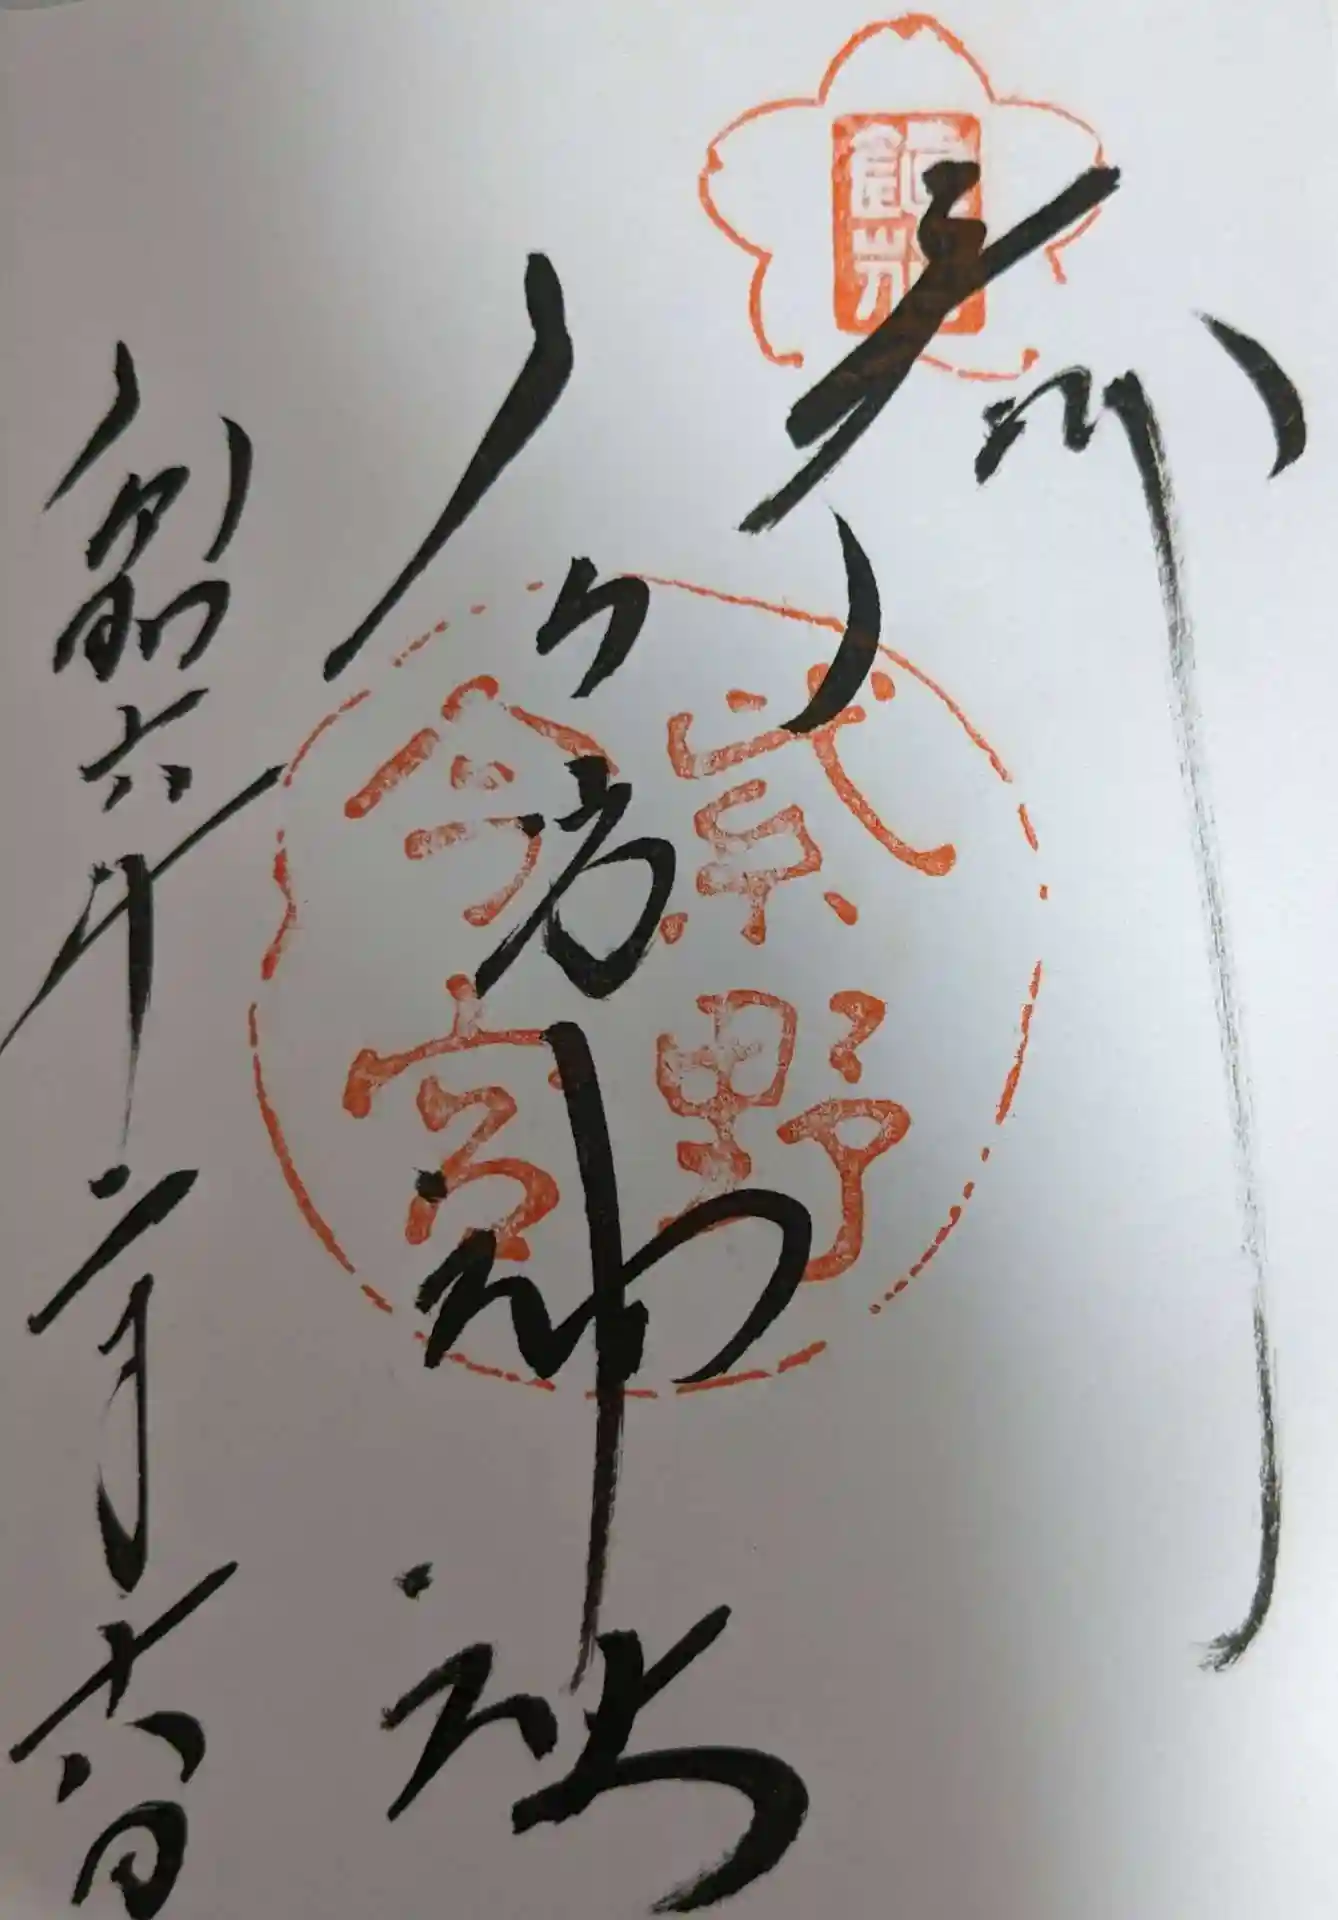 奉拝
今宮神社
令和六年二月十六日
紫野
今宮